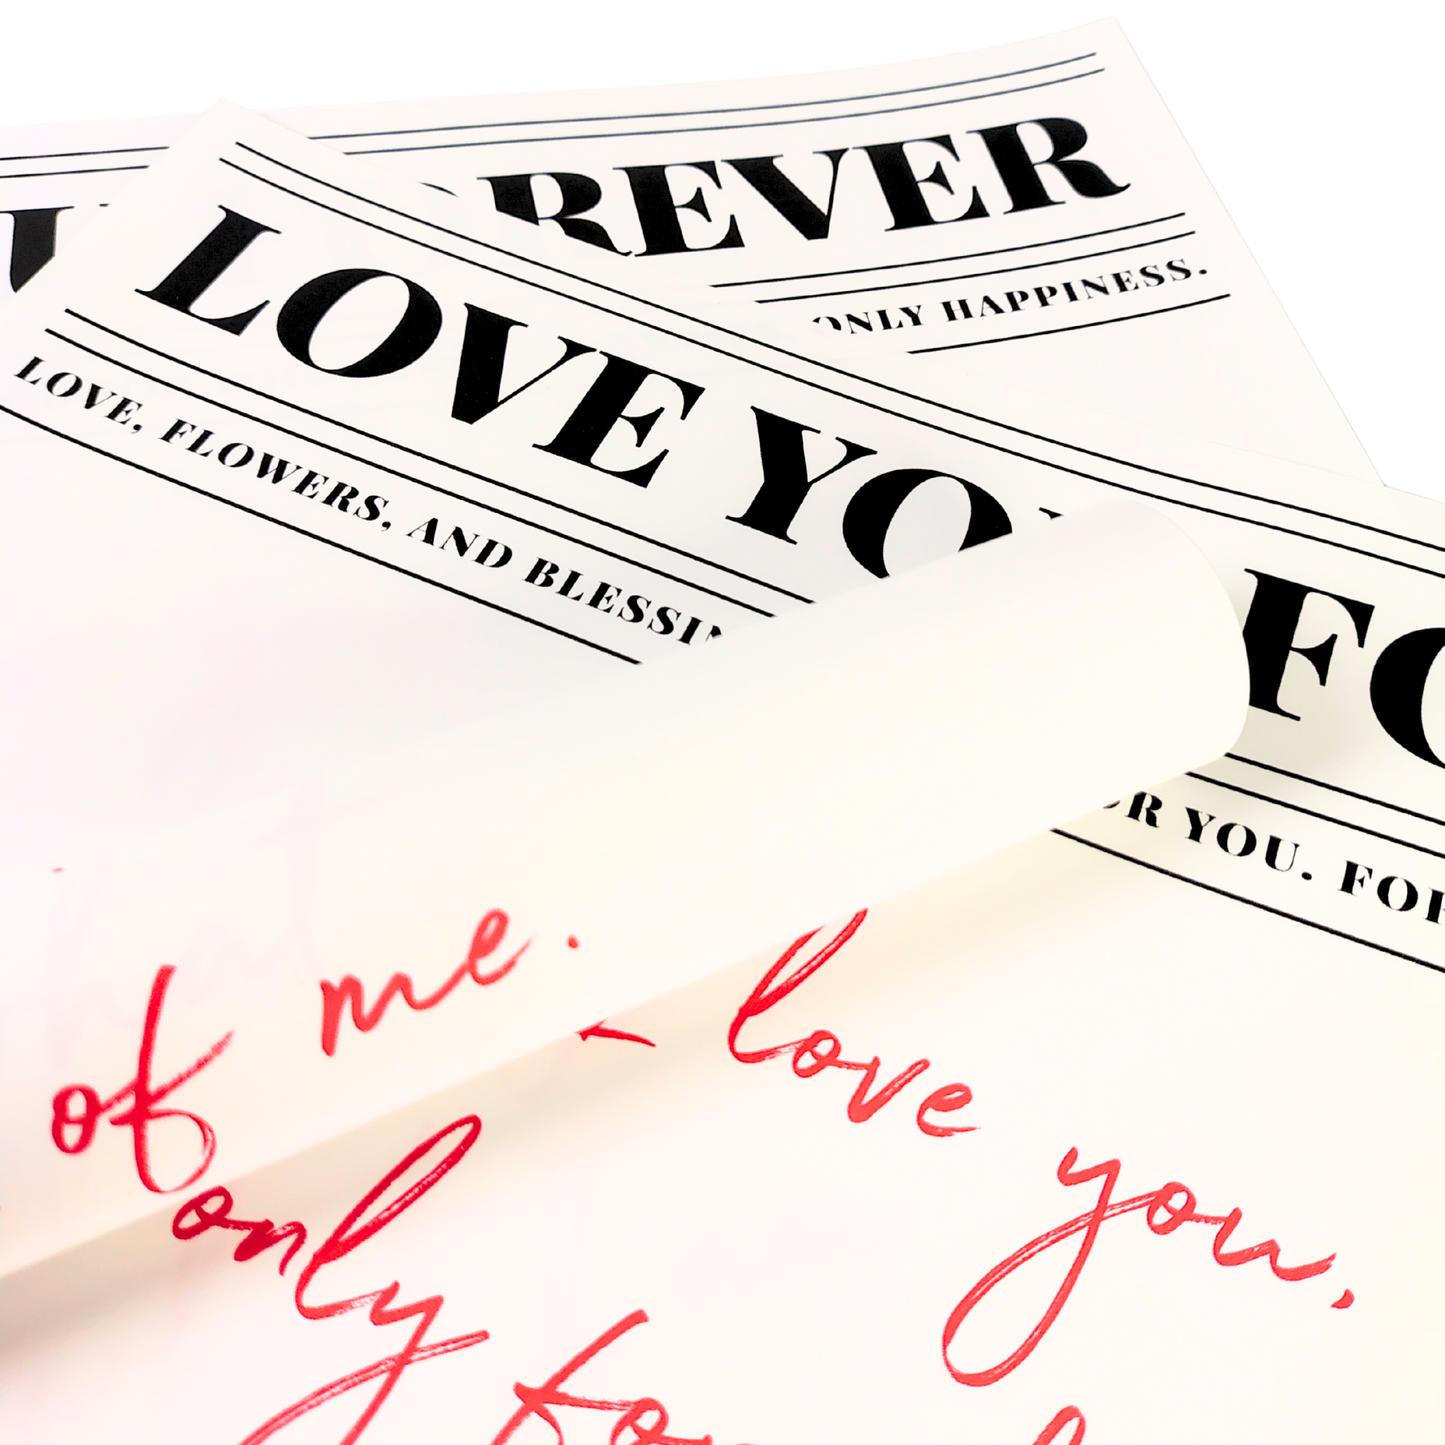 REVER
ONLY HAPPINESS.
LOVE YO FO
LOVE, FLOWERS, AND BLESSIN R YOU. FOR
of me.
love you,
only
for